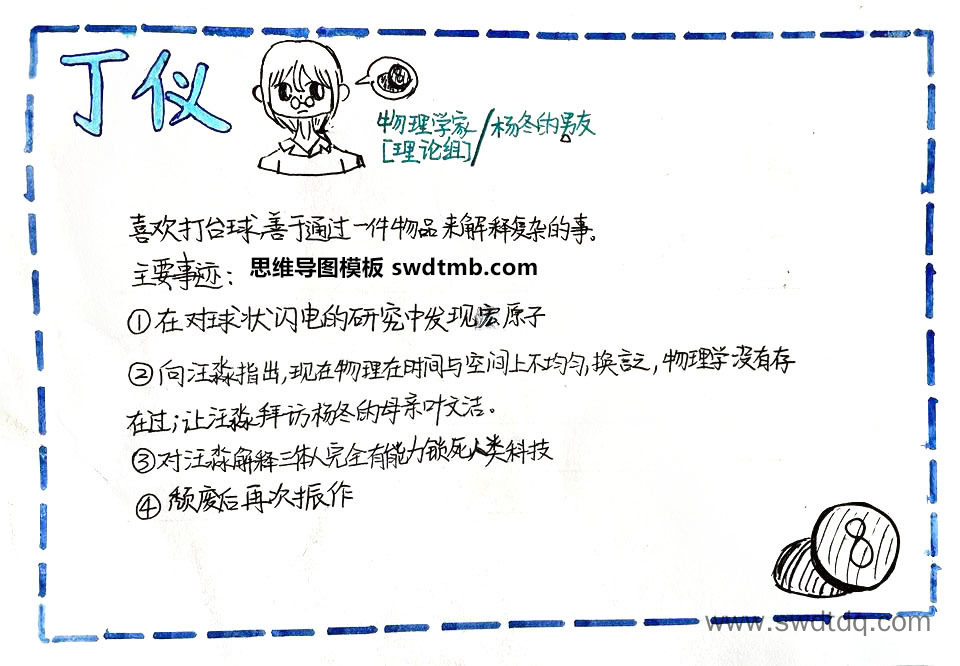 丁仪
8
物理学家/杨冬的男友
[理论组]
喜欢打台球,善于通过一件物品来解释复杂的事。
主要事迹: 思维导图模板 swdtmb.com
①在对球状闪电的研究中发现宏原子
②向汪淼指出,现在物理在时间与空间上不均匀,换言之,物理学没有存
在过;让汪淼拜访杨冬的母亲叶文洁。
③对汪淼解释三体人完全有能力锁死人类科技
④颓废后再次振作
8
www.swdtdq.com